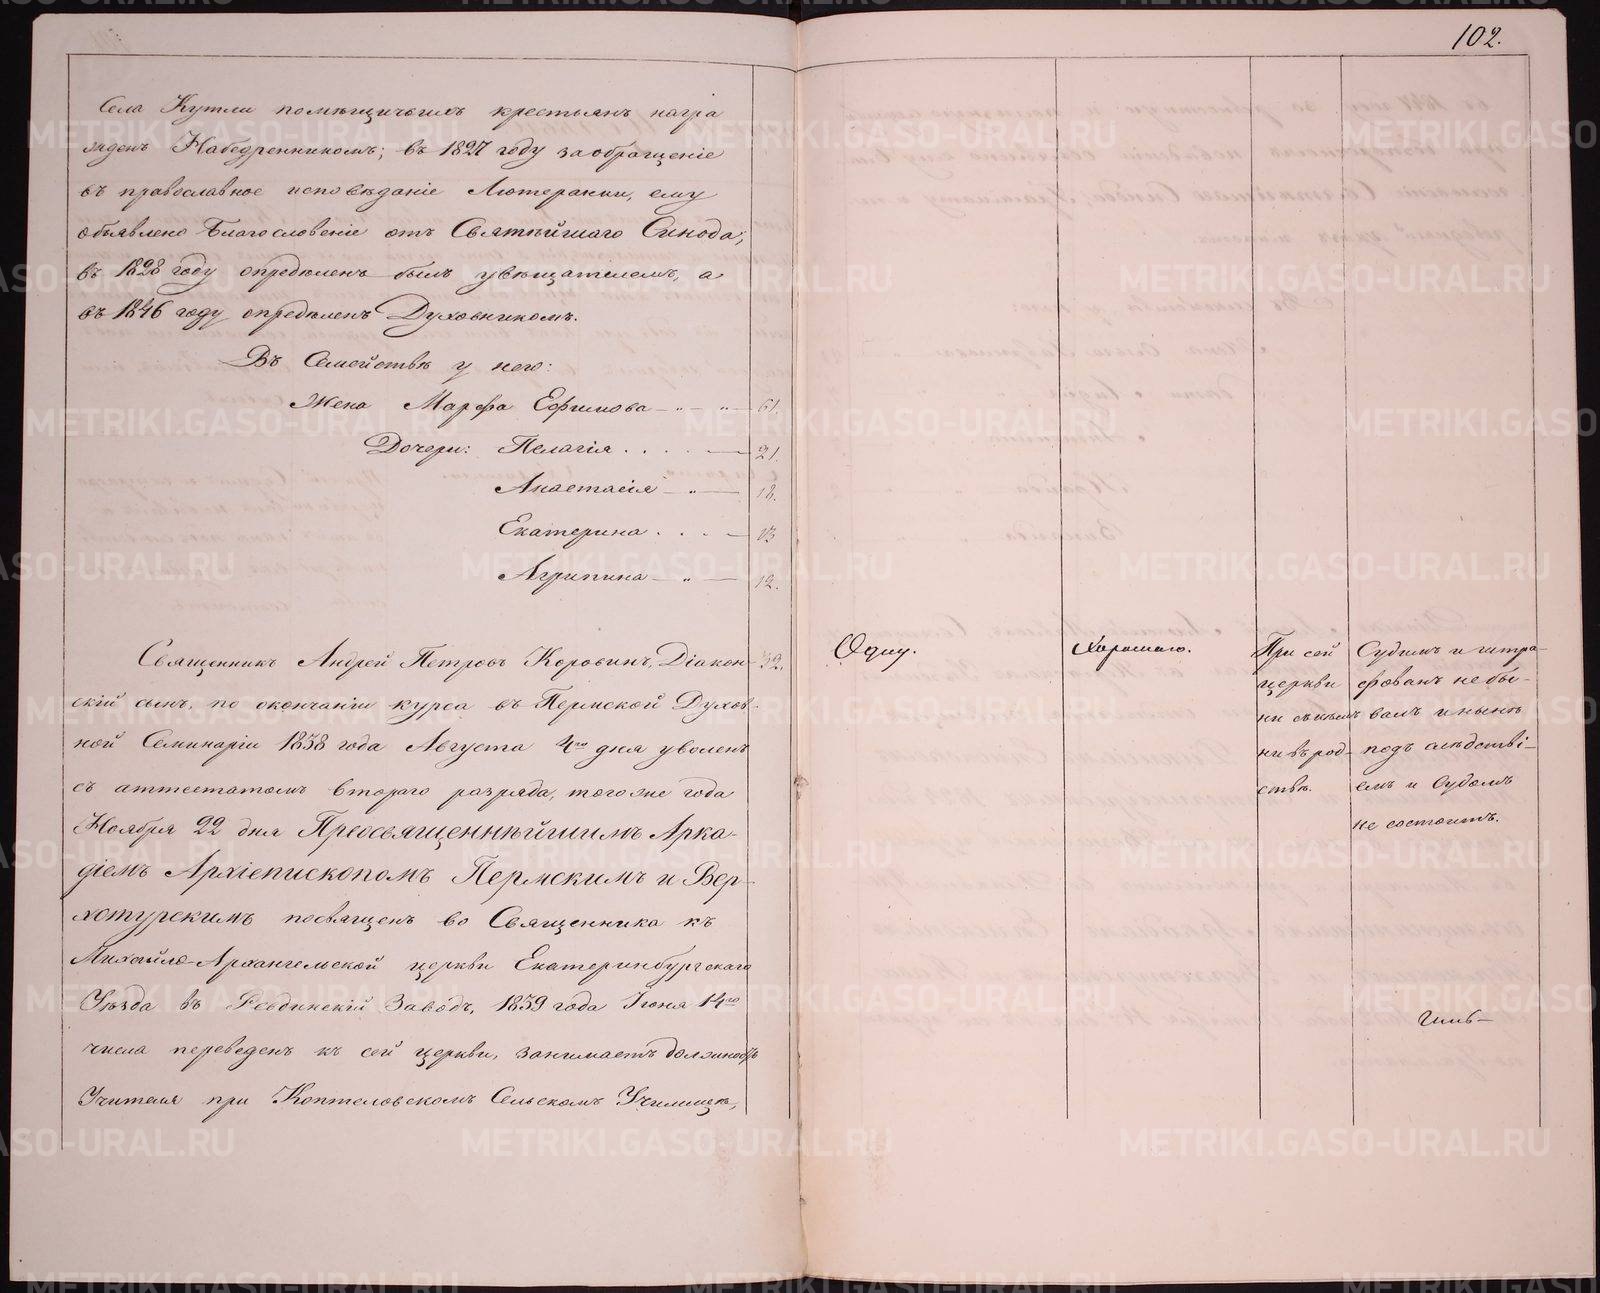 102.
Села Кутли помѣщичьихъ крестьянъ награ
жденъ Набедренникомъ; въ 1827 году за обращеніе
въ православное исповѣданіе Лютеранки, ему
объявлено Благословеніе отъ Святѣйшаго Синода;
въ 1828 году опредѣленъ былъ увѣщателемъ, а
въ 1846 году опредѣленъ Духовникомъ.
Въ Семействѣ у него:
Жена Марфа Ефимова — „ — „ — 61.
Дочери: Пелагія . . . . — 21.
Анастасія — „ — 18.
Екатерина . . . — 13
Агрипина — „ — 12.
Священникъ Андрей Петровъ Коровинъ, Діакон- 32.
скій сынъ, по окончаніи курса въ Пермской Духов-
ной Семинаріи 1838 года Августа 4го дня уволенъ
съ аттестатомъ втораго разряда, того же года
Ноября 22 дня Преосвященнѣйшимъ Арка-
діемъ Архіепископомъ Пермскимъ и Вер-
хотурскимъ посвященъ во Священника къ
Михайло-Архангельской церкви Екатеринбургскаго
Уѣзда въ Ревдинскій Заводъ, 1839 года Іюня 14го
числа переведенъ къ сей церкви, занимаетъ должность
Учителя при Коптеловскомъ Сельскомъ Училищѣ,
Одну.
Хорошаго.
При сей
церкви
ни съ кѣмъ
ни въ род-
ствѣ.
Судимъ и штра-
фованъ не бы-
валъ и нынѣ
подъ слѣдстві-
емъ и Судомъ
не состоитъ.
Имѣ-
METRIKI.GASO-URAL.RU